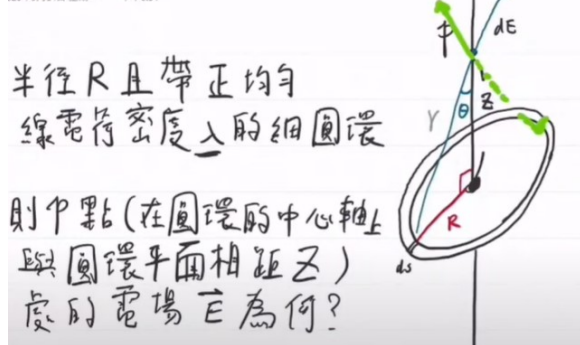 半徑R且帶正均勻
線電荷密度入的細圓環
則P點(在圓環的中心軸上
與圓環平面相距Z)
處的電場E為何?
P
dE
Z
r
θ
R
ds